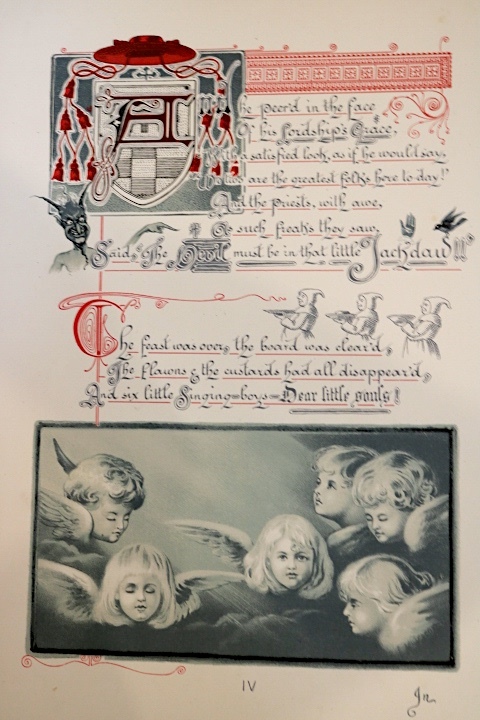 he peer'd in the face
Of his Lordship's Grace,
With a satisfied look, as if he would say,
We two are the greatest folks here to day!"
And the priests, with awe,
As such freaks they saw,
Said, "The Devil must be in that little Jackdaw!!"
The feast was over, the board was clear'd,
The flawns & the custards had all disappear'd,
And six little Singing-boys—Dear little souls!
IV